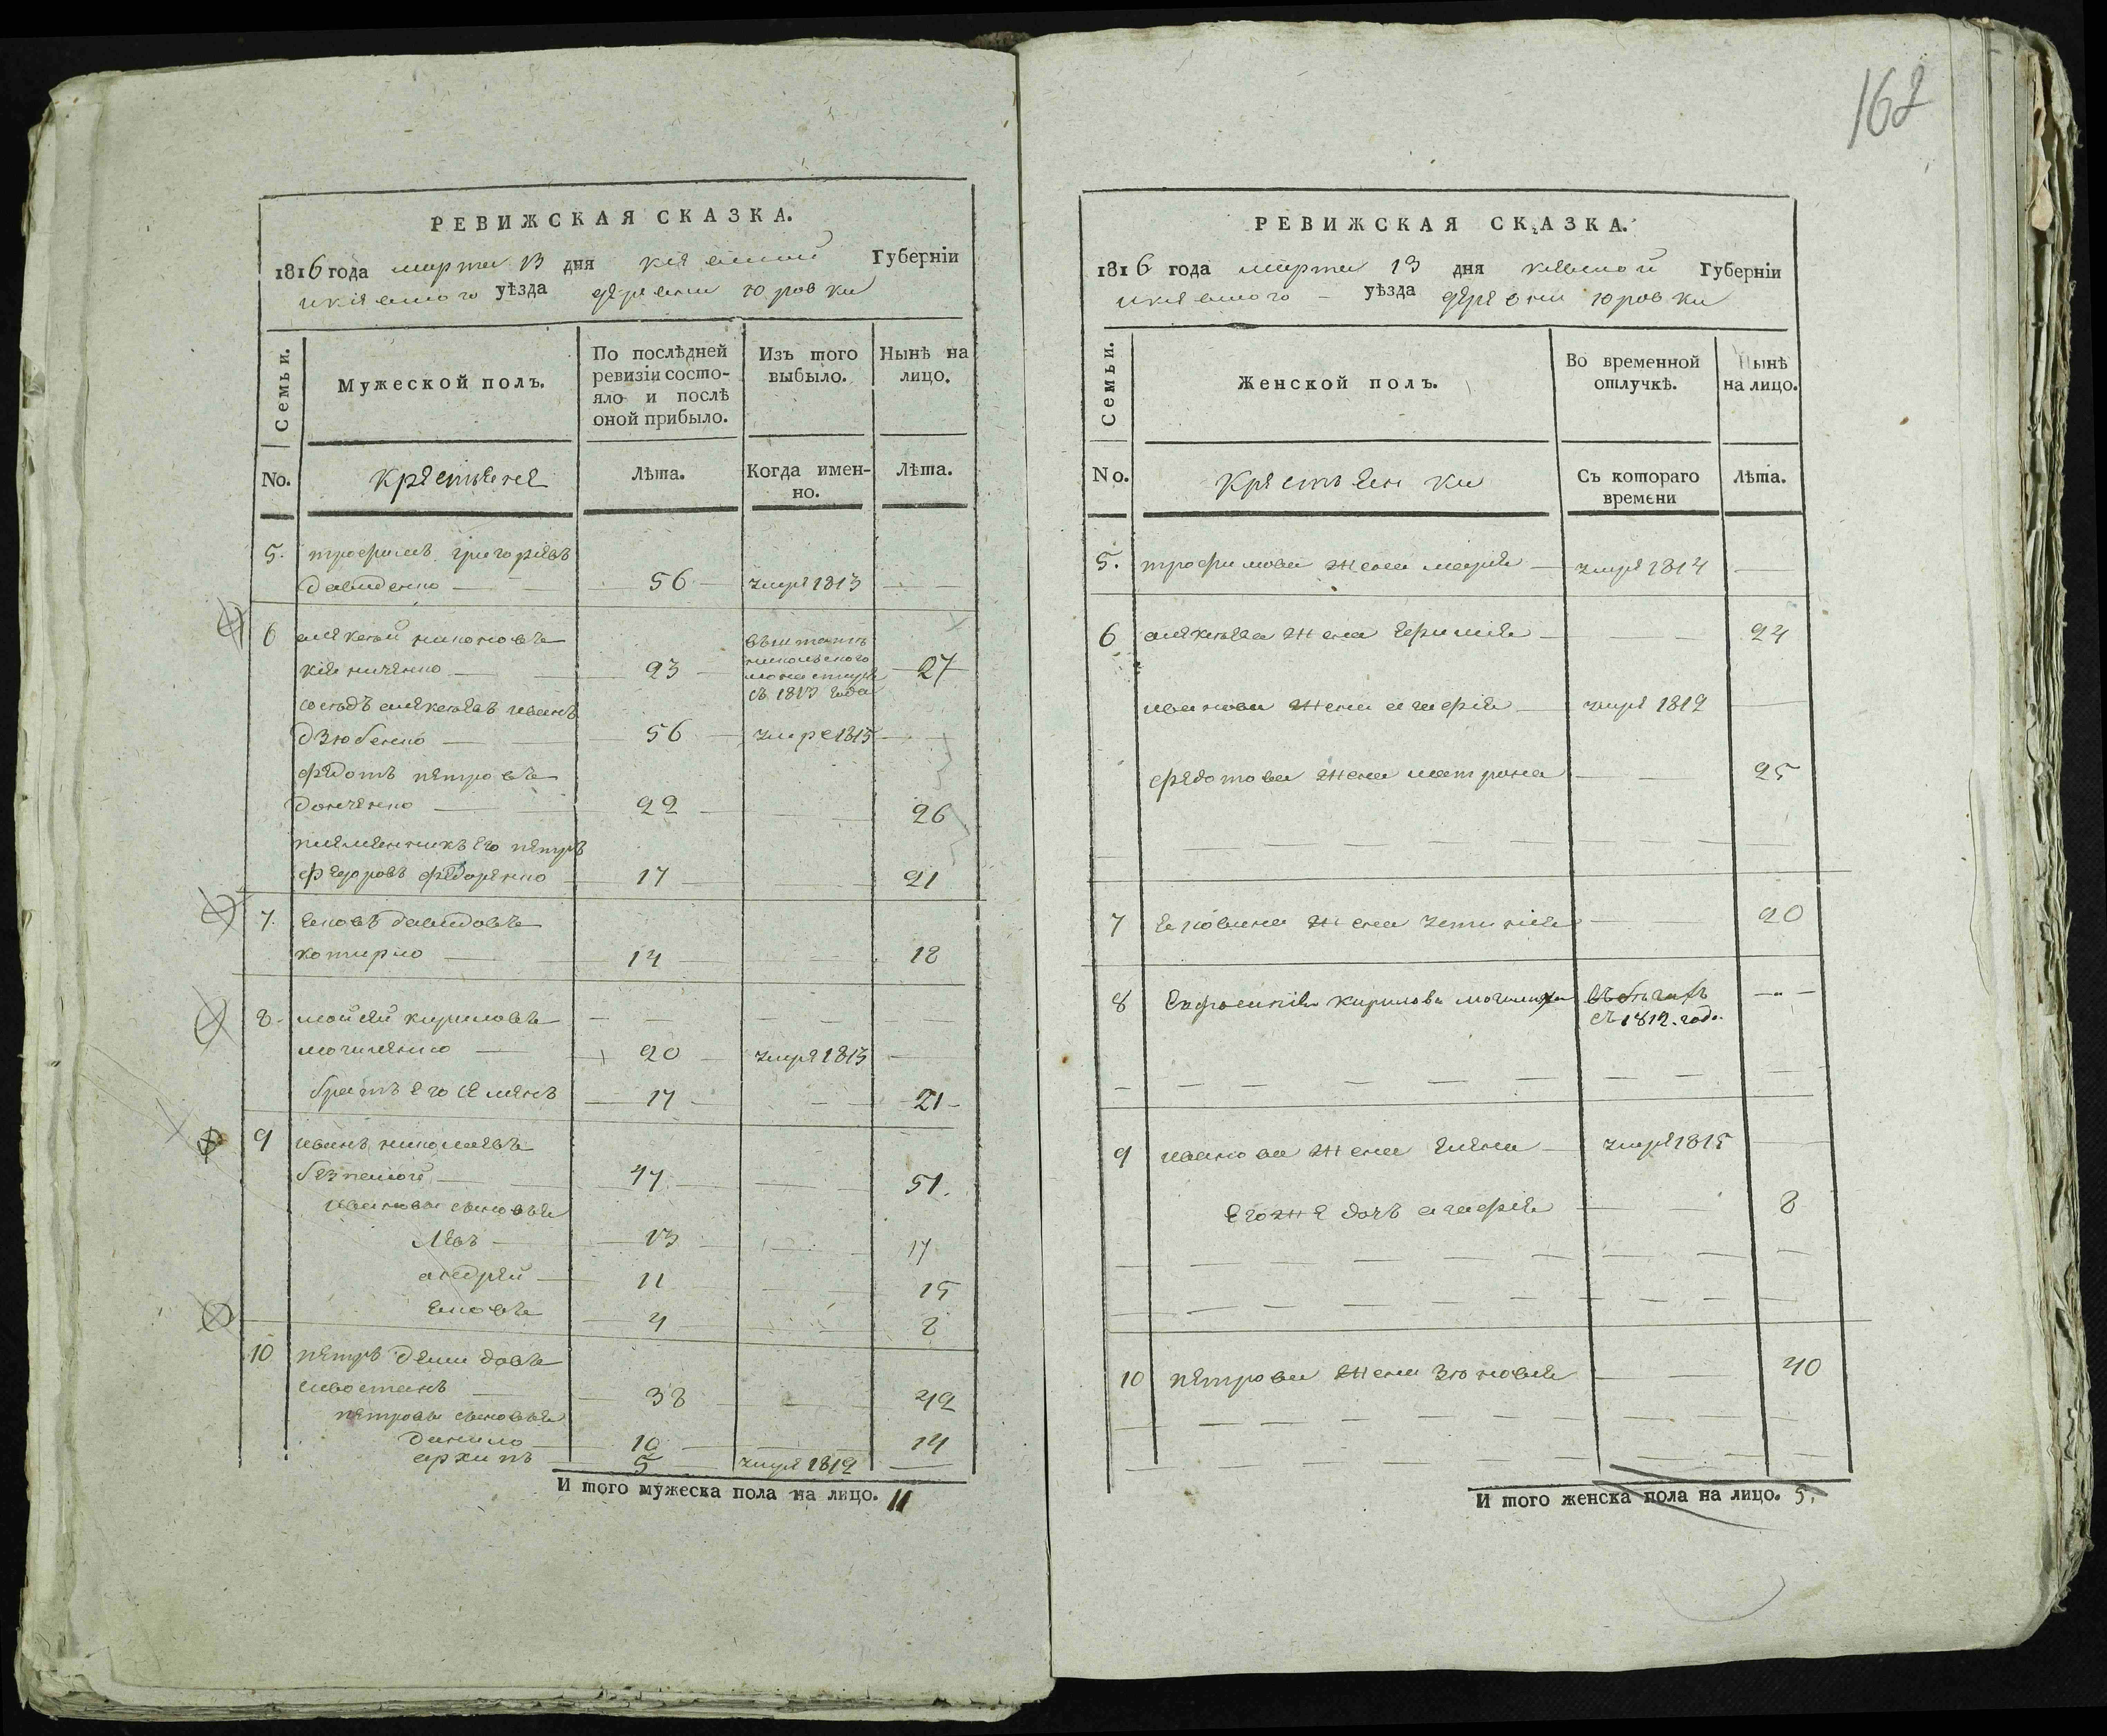 162
РЕВИЖСКАЯ СКАЗКА.
1816 года марта 13 дня кіевской Губерніи
икіевского уѣзда деревни юровки
Семьи.
Мужеской полъ.
По послѣдней ревизіи состо-
яло и послѣ
оной прибыло.
Изъ того
выбыло.
Нынѣ на
лицо.
No.
крестьяне
Лѣта.
Когда имен-
но.
Лѣта.
5. трофимъ григоріевъ
давиденко — 56 — умре 1813 —
6 алексѣй никоновъ
23 27
никольского
монастыря
съ 1813 года
алексѣевъ иванъ
дзюбенко — 56 — умре 1815 —
федотъ петровъ
донченко — 22 — 26
племянникъ его петръ
федоровъ федоренко 17 — 21
7. яковъ давидовъ
14 — 18
8. мойсей кириловъ — — —
20 — умре 1813 —
братъ его семенъ — 17 — 21
9 иванъ николаевъ
47 — 51.
ивановы сыновья
левъ — 13 — 17
андрей — 11 — 15
яковъ 4 — 8
10 петръ демидовъ
38 — 42
петровы сыновья
данило 10 — 14
архипъ 5 — умре 1812 —
И того мужеска пола на лицо. 11
РЕВИЖСКАЯ СКАЗКА.
1816 года марта 13 дня кіевской Губерніи
икіевского — уѣзда деревни юровки
Семьи.
Женской полъ.
Во временной
отлучкѣ.
Нынѣ
на лицо.
No.
крестьян ки
Съ котораго
времени
Лѣта.
5. трофимова жена марія — умре 1814 —
6 алексѣева жена ефимія — 24
иванова жена агафія — умре 1812 —
федотова жена матрона — 25
7 яковина жена устинія — 20
8 Ефросинія кирилова въ бѣгахъ — —
съ 1812. года
9 иванова жена елена — умре 1815 —
его же дочъ агафія — 8
10 петрова жена зѣновія — 40
И того женска пола на лицо. 5.